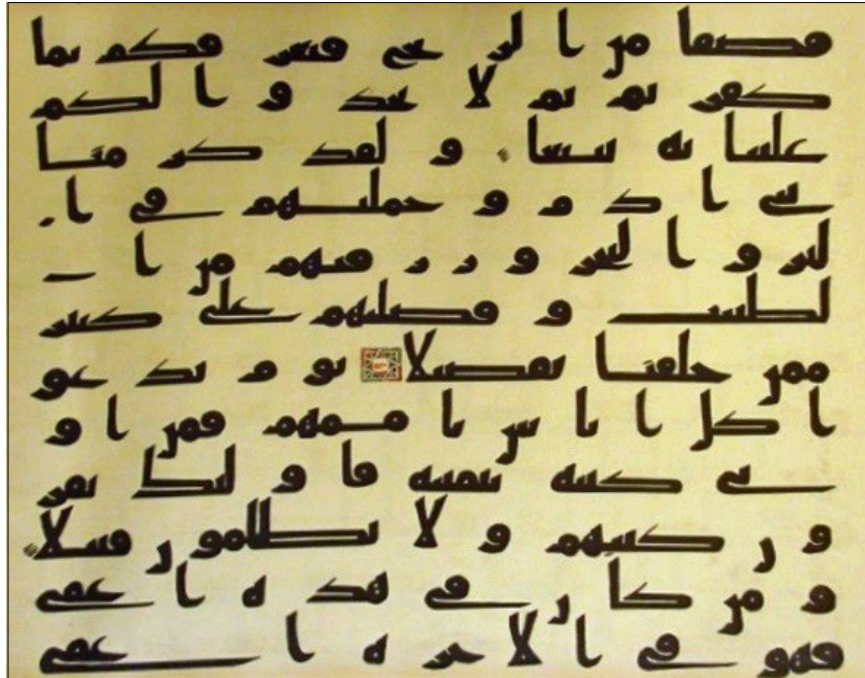 قصفا من الريح فيغرقكم بما
كفرتم ثم لا تجد وا لكم
علينا به تبيعا و لقد كرمنا
بني ادم و حملنهم في ا
لبر و البحر و رزقنهم من ا
لطيبت و فضلنهم على كثير
ممن خلقنا تفضيلا يوم ندعو
ا كل اناس باممهم فمن او
تي كتبه بيمينه فاولئك يقر
ون كتبهم و لا يظلمون فتيلا
و من كان في هذه اعمى
فهو في الاخره اعمى